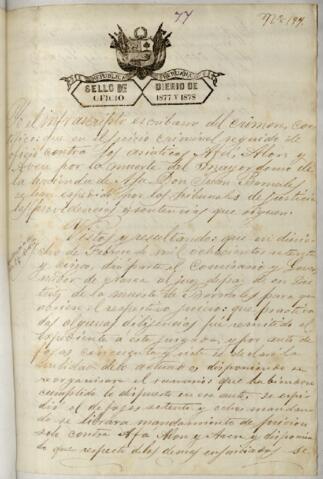 77
REPUBLICA PERUANA
SELLO DE OFICIO
BIENIO DE 1877 Y 1878
El infrascripto escribano del crimen, cer
tifico: que en el juicio criminal seguido de
oficio contra los asiáticos Afá, Alon y
Aven por la muerte del mayordomo de
la hacienda de Don Juan
se han espedido por los tribunales de justicia
las providencias y sentencias que siguen.
Vistos y resultando: que en diezio
cho de Febrero de mil ochocientos setenta
y cinco, dió parte el Comisario y
de al juez de paz de
de la muerte de para que
el respectivo juicio: que practica
das algunas diligencias fué remitido el
espediente a este juzgado, y por auto de
fojas cincuenta y siete se declaró la
nulidad de lo actuado disponiendo se
reorganizase el sumario que habiendose
cumplido lo dispuesto en ese auto, se espi
dió el de fojas setenta y ocho mandan
do se librara mandamiento de prision
solo contra Afá, Alon y Aven y disponien
do que respecto de los demas enjuiciados se